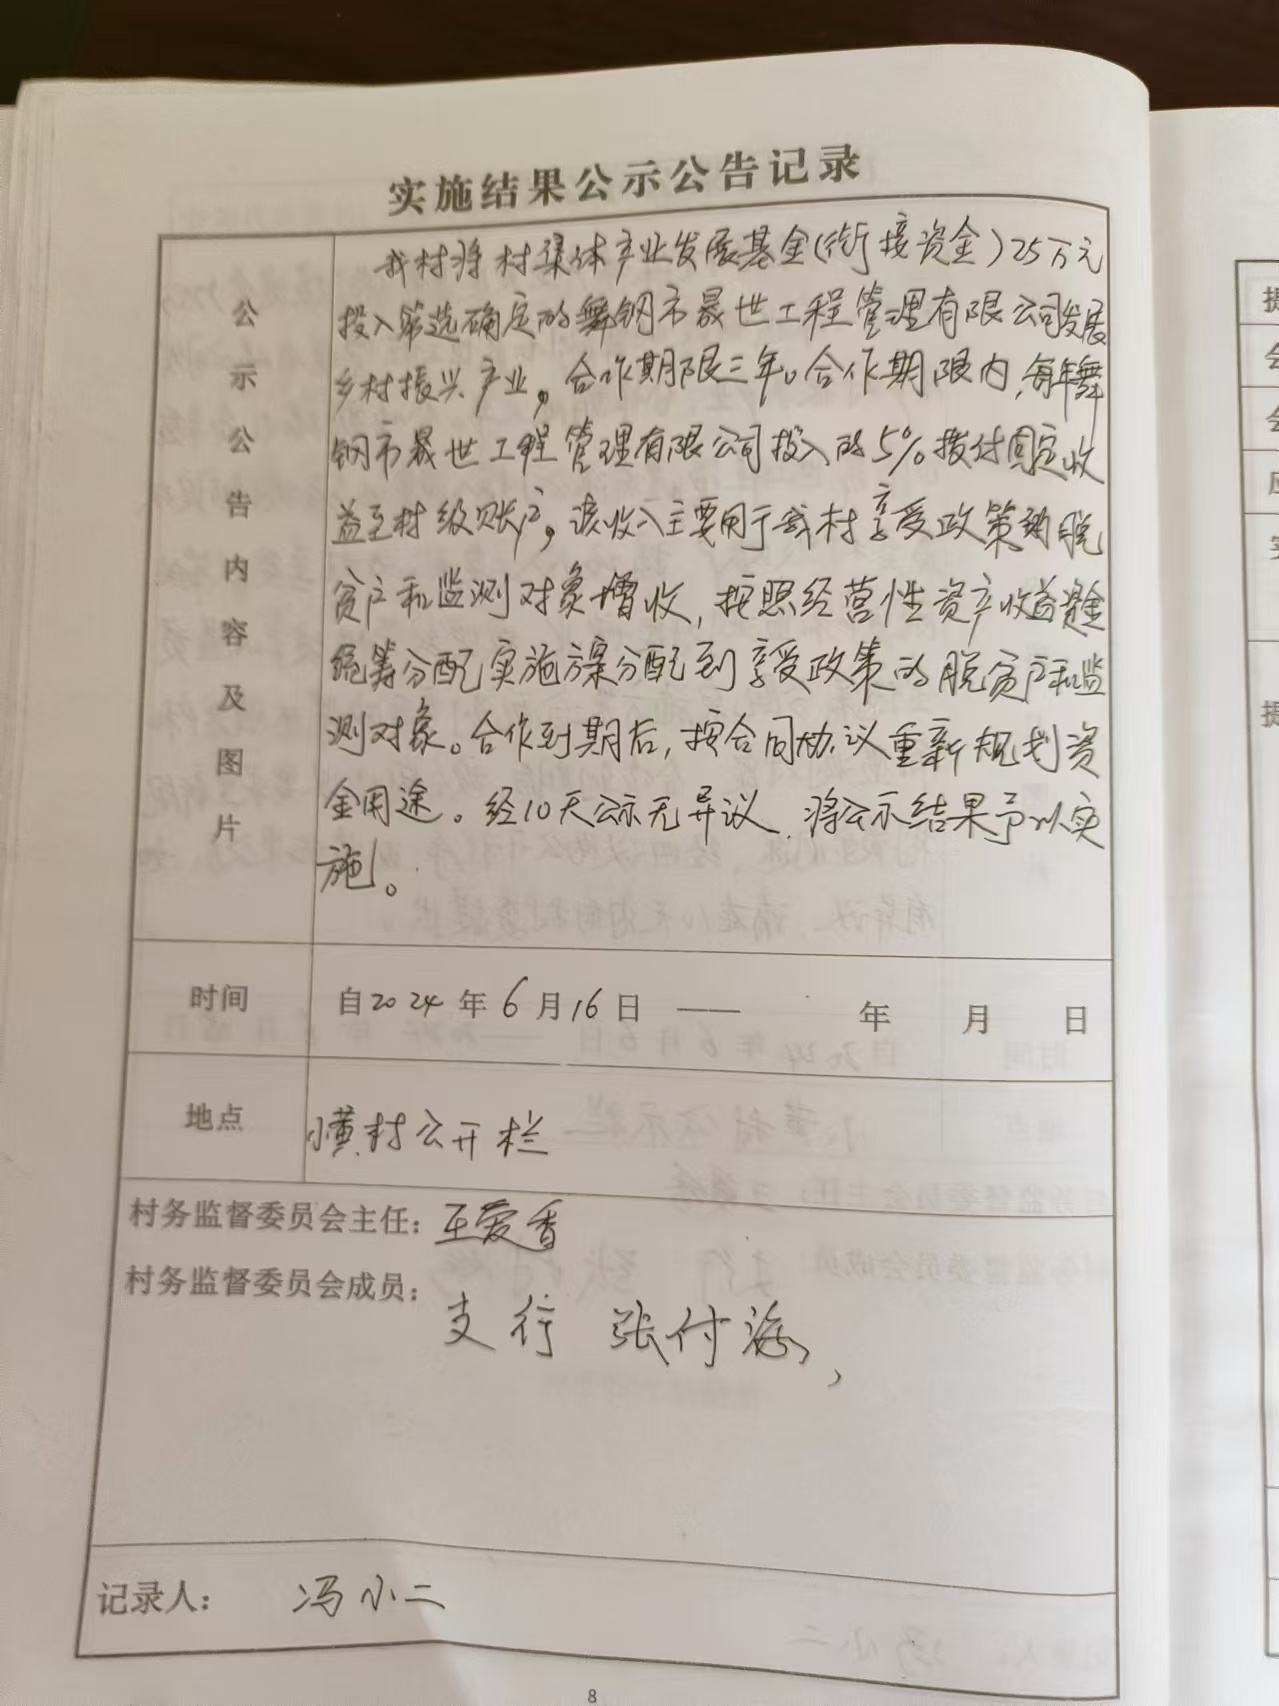 实施结果公示公告记录
公示公告内容及图片
我村将村集体产业发展基金(衔接资金)25万元
投入筛选确定的舞钢市晟世工程管理有限公司发展
乡村振兴产业。合作期限三年。合作期限内,每年舞
钢市晟世工程管理有限公司投入的5%拨付固定收
益至村级账户,该收入主要用于我村享受政策的脱
贫户和监测对象增收,按照经营性资产收益资金
统筹分配实施方案分配到享受政策的脱贫户和监
测对象。合作到期后,按合同协议重新规划资
金用途。经10天公示无异议,将公示结果予以实
施。
时间 自2024年6月16日 —— 年 月 日
地点 村公开栏
村务监督委员会主任:王爱香
村务监督委员会成员:
支行 张付海
记录人: 冯小二
8